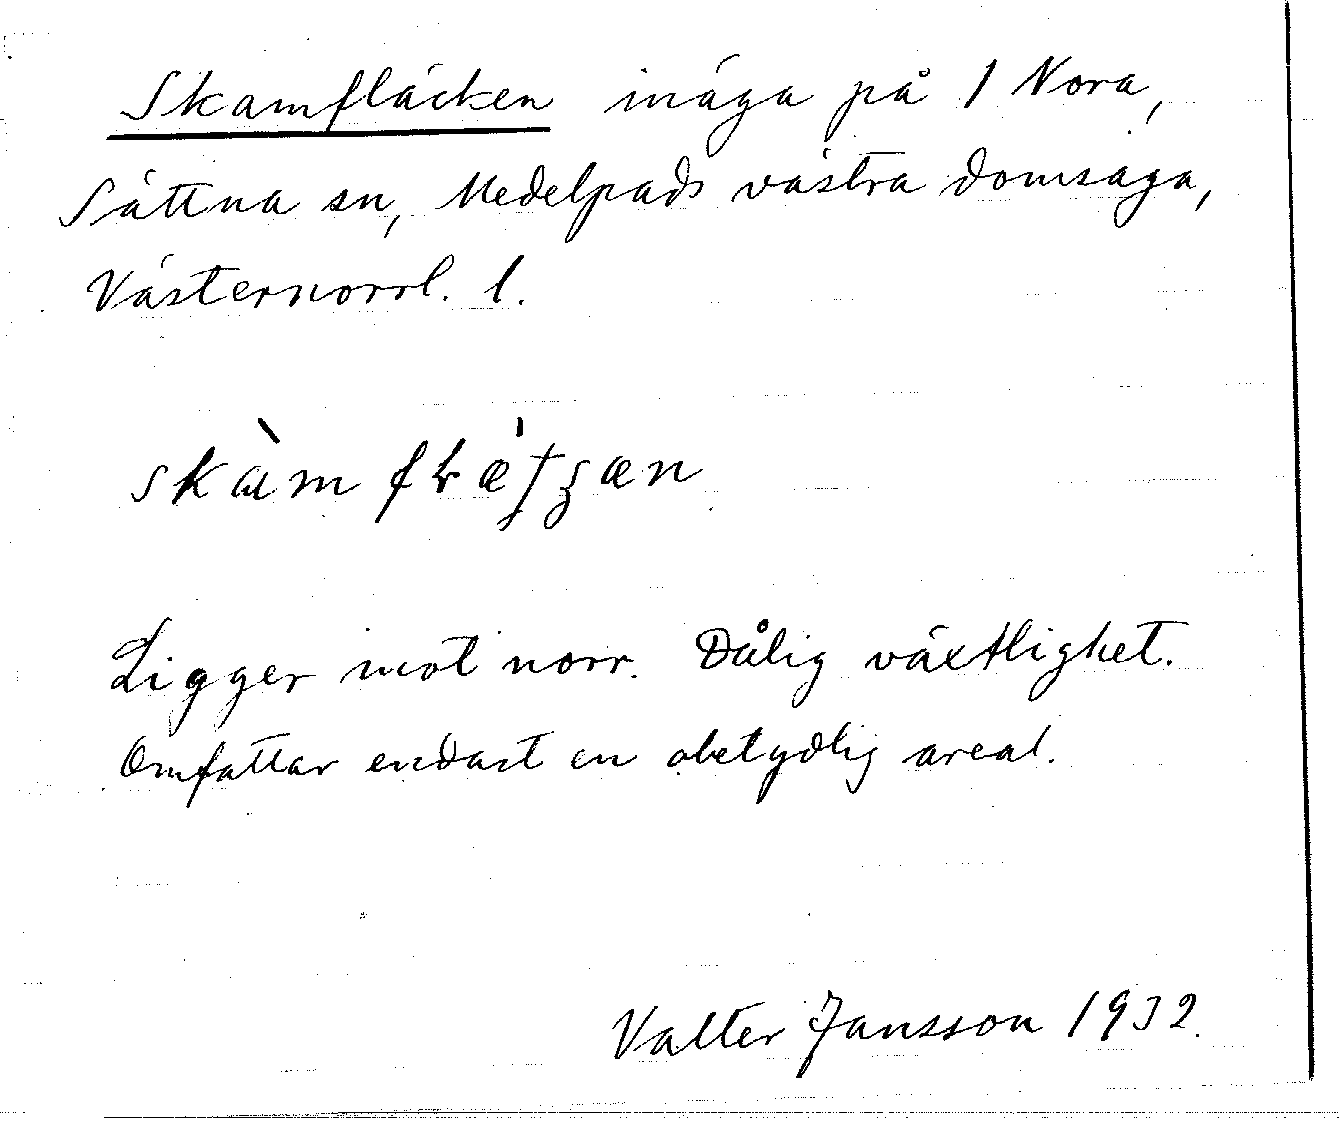 Skamfläcken inäga på 1 Nora,
Sättna sn, Medelpads västra domsaga,
Västernorrl. l.
Ligger mot norr. Dålig växtlighet.
Omfattar endast en obetydlig areal.
Valter Jansson 1932.